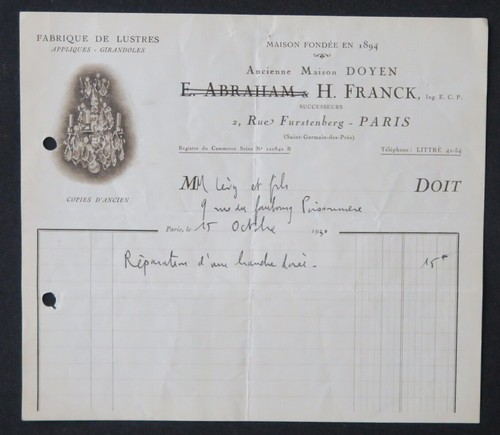 FABRIQUE DE LUSTRES
APPLIQUES - GIRANDOLES
COPIES D'ANCIEN
MAISON FONDÉE EN 1894
Ancienne Maison DOYEN
E. ABRAHAM & H. FRANCK, Ing. E. C. P.
SUCCESSEURS
2, Rue Furstenberg - PARIS
(Saint-Germain-des-Prés)
Registre du Commerce Seine Nº
Téléphone: LITTRÉ 42-84
M M Lévy et fils DOIT
9 rue du faubourg Poissonnière
Paris, le 15 Octobre 1930
Réparation d'une branche dorée. 15